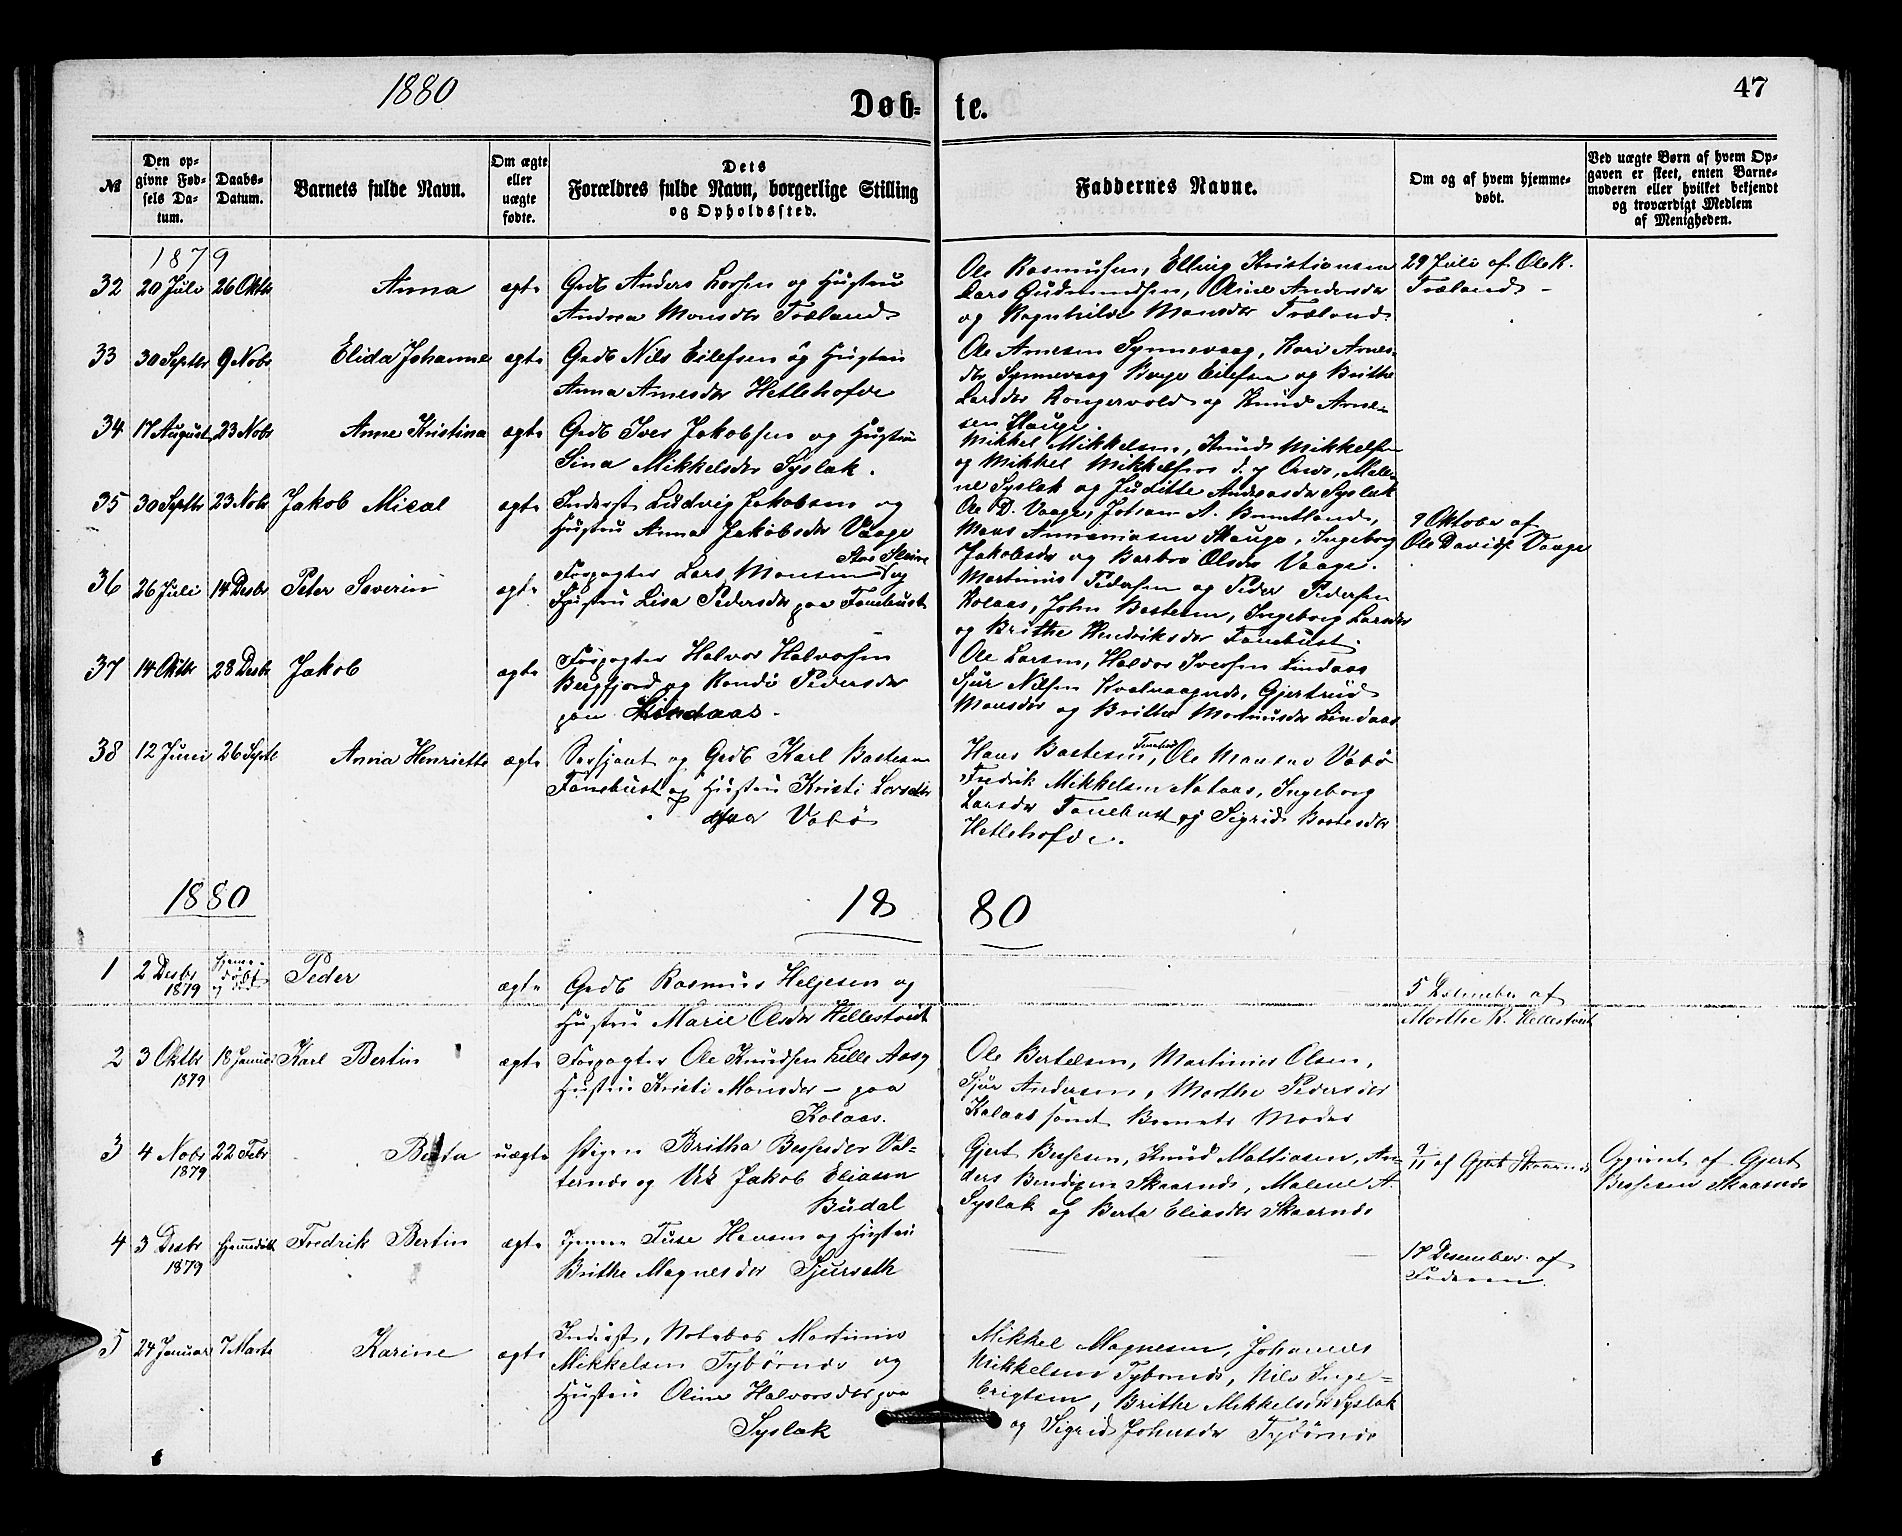 1880
Døb- te.
47
№
Den op-
givne Fød-
sels Da-
tum.
Daabs-
Datum.
Barnets fulde Navn.
Om ægte
eller
uægte
fødte.
Dets
Forældres fulde Navn, borgerlige Stilling
og Opholdssted.
Faddernes Navne.
Om og af hvem hjemme-
døbt.
Ved uægte Børn af hvem Op-
gaven er skeet, enten Barne-
moderen eller hvilket bekjendt
og troværdigt Medlem
af Menigheden.
1879
32 20 Juli 26 Oktbr Anna ægte
Gmdb Anders Larsen og Hustru
Andrea Monsdr Træland
Ole Rasmussen, Elling Kristiansen
Lars Gudmundsen, Oline Andersdr
og Ragnhilde Monsdr Træland
29 Juli af Ole K.
Træland
33 30 Septbr 9 Nobr Elida Johanne ægte
Gmdb Nils Eilefsen og Hustru
Anna Arnesdr Hetlehofde
Ole Arnesen Synnevaag, Kari Arnes-
dr Synnevaag Eilefsen og Brithe
Larsdr Kongsvold og Knud Arne-
sen Hauge.
34 17 August 23 Nobr Anne Kristina ægte
Gmdb Iver Jakobsen og Hustru
Sina Mikkelsdr Syslak.
Mikkel Mikkelsen, Knud Mikkelsen
og Mikkel Mikkelsen d. y Male-
ne Syslak og Juditte Andreasdr Syslak
35 30 Septbr 23 Nobr Jakob Mical ægte
Inderst Ludvig Jakobsen og
Hustru Anna Jakobsdr Vaage
Ole D. Vaage, Johan A.
Mons Annaniasen Skauge, Ingeborg
Jakobsdr og Barbro Olsdr Vaage.
9 Oktober af
Ole Davids. Vaage
36 26 Juli 14 Desbr Peter Severin ægte
Forpagter Lars Monsen og
Hustru Lisa Pedersdr paa Fanebust
Martinus Pedersen og Peder Pedersen
Kolaas, John Bastesen, Ingeborg Larsdr
og Brithe Hendriksdr Fanebust
37 14 Oktbr 28 Desbr Jakob ægte
Forpagter Halvor Halvorsen
Bergfjord og Pedersdr
paa Lindaas.
Ole Larsen, Haldor Iversen Lindaas
Sjur Nilsen Gjertrud
Monsdr og Brithe Martinusdr Lindaas
38 12 Juni 26 Septb Anna Henriette ægte
Sersjant og Gmdb Karl Bastesen
Fanebust og Hustru Kristi Larsdtr
paa Vabø
Hans Bastesen, Ole Monsen Vabø
Fredrik Mikkelsen Nataas, Ingeborg
Larsdr Fanebust og Sigrid Bastesdr
Hetlehofde.
1880
18 80
1 2 Desbr
1879
Hjemme-
døbt
Peder ægte
Gmdb Rasmus Helgesen og
Hustru Marie Olsdr Hellestveit
5 Desember af
Marthe R. Hellestveit
2 3 Oktbr
1879
18 Januar Karl Bertin ægte
Forpagter Ole Knudsen Lille Aas og
Hustru Kristi Monsdr - paa
Kolaas.
Ole Bertelsen, Martinus Olsen,
Sjur Andersen, Marthe Pedersdr
Kolaas samt Barnets Moder
3 4 Nobr
1879
22 Febr Berta uægte
Pigen Britha Bessesdr Val-
ternæs og Jakob Eliassen
Budal
Gjert Bessesen, Knud Mathiasen, An-
ders Bendixen Skaarnæs, Malene A.
Syslak og Berta Eliasdr Skaarnæs
9/11 af Gjert Skaarnæs
Opgivet af Gjert
Bessesen Skaarnæs
4 3 Desbr
1879
Hjemmedøbt Fredrik Bertin ægte
Hansen og Hustru
Brithe Magnesdr Sjurseth
17 Desember af
Faderen.
5 24 Januar 7 Marts Karine ægte
Inderst, Martinus
Mikkelsen Tybørnæs og
Hustru Oline Halvorsdr paa
Syslak
Mikkel Magnesen, Johannes
Mikkelsen Tybørnæs, Nils Inge-
brigtsen, Brithe Mikkelsdr Syslak
og Sigrid Johnsdr Tybørnæs